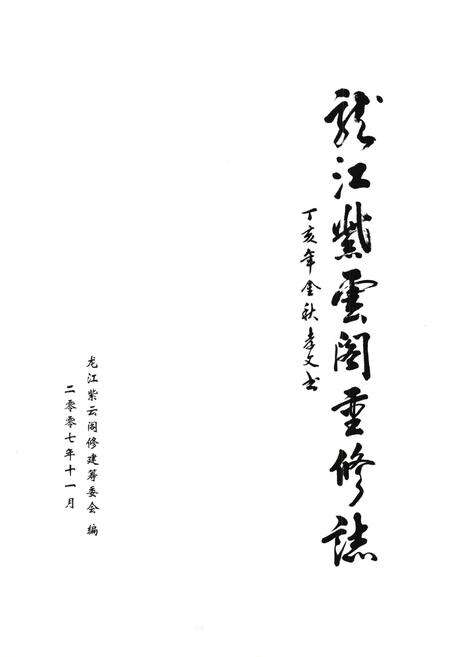 龍江紫雲閣重修誌
丁亥年金秋孝文书
龙江紫云阁修建筹委会 编
二零零七年十一月